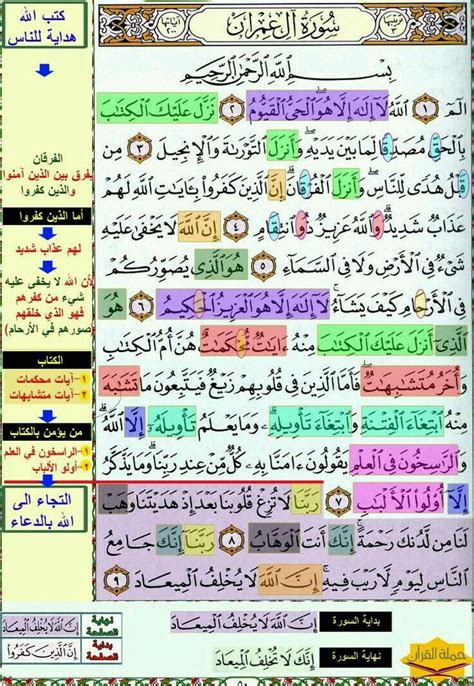 كتب الله
هداية للناس
الفرقان
يفرق بين الذين آمنوا
والذين كفروا
أما الذين كفروا
لهم عذاب شديد
لأن الله لا يخفى عليه
شيء من كفرهم
فهو الذي خلقهم
(صورهم في الأرحام)
الكتاب
١- آيات محكمات
٢- آيات متشابهات
من يؤمن بالكتاب
١- الراسخون في العلم
٢- أولو الألباب
التجاء الى
الله بالدعاء
ترتيبها ٣
سورة آل عمران
آياتها ٢٠٠
بِسْمِ اللَّهِ الرَّحْمَٰنِ الرَّحِيمِ
الٓمٓ ١ ٱللَّهُ لَآ إِلَٰهَ إِلَّا هُوَ ٱلْحَىُّ ٱلْقَيُّومُ ٢ نَزَّلَ عَلَيْكَ ٱلْكِتَٰبَ
بِٱلْحَقِّ مُصَدِّقًا لِّمَا بَيْنَ يَدَيْهِ وَأَنزَلَ ٱلتَّوْرَىٰةَ وَٱلْإِنجِيلَ ٣ مِن
قَبْلُ هُدًى لِّلنَّاسِ وَأَنزَلَ ٱلْفُرْقَانَ إِنَّ ٱلَّذِينَ كَفَرُوا۟ بِـَٔايَٰتِ ٱللَّهِ لَهُمْ
عَذَابٌ شَدِيدٌ وَٱللَّهُ عَزِيزٌ ذُو ٱنتِقَامٍ ٤ إِنَّ ٱللَّهَ لَا يَخْفَىٰ عَلَيْهِ
شَىْءٌ فِى ٱلْأَرْضِ وَلَا فِى ٱلسَّمَآءِ ٥ هُوَ ٱلَّذِى يُصَوِّرُكُمْ
فِى ٱلْأَرْحَامِ كَيْفَ يَشَآءُ لَآ إِلَٰهَ إِلَّا هُوَ ٱلْعَزِيزُ ٱلْحَكِيمُ ٦ هُوَ
ٱلَّذِىٓ أَنزَلَ عَلَيْكَ ٱلْكِتَٰبَ مِنْهُ ءَايَٰتٌ مُّحْكَمَٰتٌ هُنَّ أُمُّ ٱلْكِتَٰبِ
وَأُخَرُ مُتَشَٰبِهَٰتٌ فَأَمَّا ٱلَّذِينَ فِى قُلُوبِهِمْ زَيْغٌ فَيَتَّبِعُونَ مَا تَشَٰبَهَ
مِنْهُ ٱبْتِغَآءَ ٱلْفِتْنَةِ وَٱبْتِغَآءَ تَأْوِيلِهِۦ وَمَا يَعْلَمُ تَأْوِيلَهُۥٓ إِلَّا ٱللَّهُ
وَٱلرَّٰسِخُونَ فِى ٱلْعِلْمِ يَقُولُونَ ءَامَنَّا بِهِۦ كُلٌّ مِّنْ عِندِ رَبِّنَا وَمَا يَذَّكَّرُ
إِلَّآ أُو۟لُوا۟ ٱلْأَلْبَٰبِ ٧ رَبَّنَا لَا تُزِغْ قُلُوبَنَا بَعْدَ إِذْ هَدَيْتَنَا وَهَبْ
لَنَا مِن لَّدُنكَ رَحْمَةً إِنَّكَ أَنتَ ٱلْوَهَّابُ ٨ رَبَّنَآ إِنَّكَ جَامِعُ
ٱلنَّاسِ لِيَوْمٍ لَّا رَيْبَ فِيهِ إِنَّ ٱللَّهَ لَا يُخْلِفُ ٱلْمِيعَادَ ٩
بداية السورة إِنَّ ٱللَّهَ لَا يُخْلِفُ ٱلْمِيعَادَ
نهاية السورة إِنَّكَ لَا تُخْلِفُ ٱلْمِيعَادَ
نهاية الصفحة إِنَّ ٱللَّهَ لَا يُخْلِفُ ٱلْمِيعَادَ
بداية الصفحة إِنَّ ٱلَّذِينَ كَفَرُوا۟
حملة القرآن
٥٠